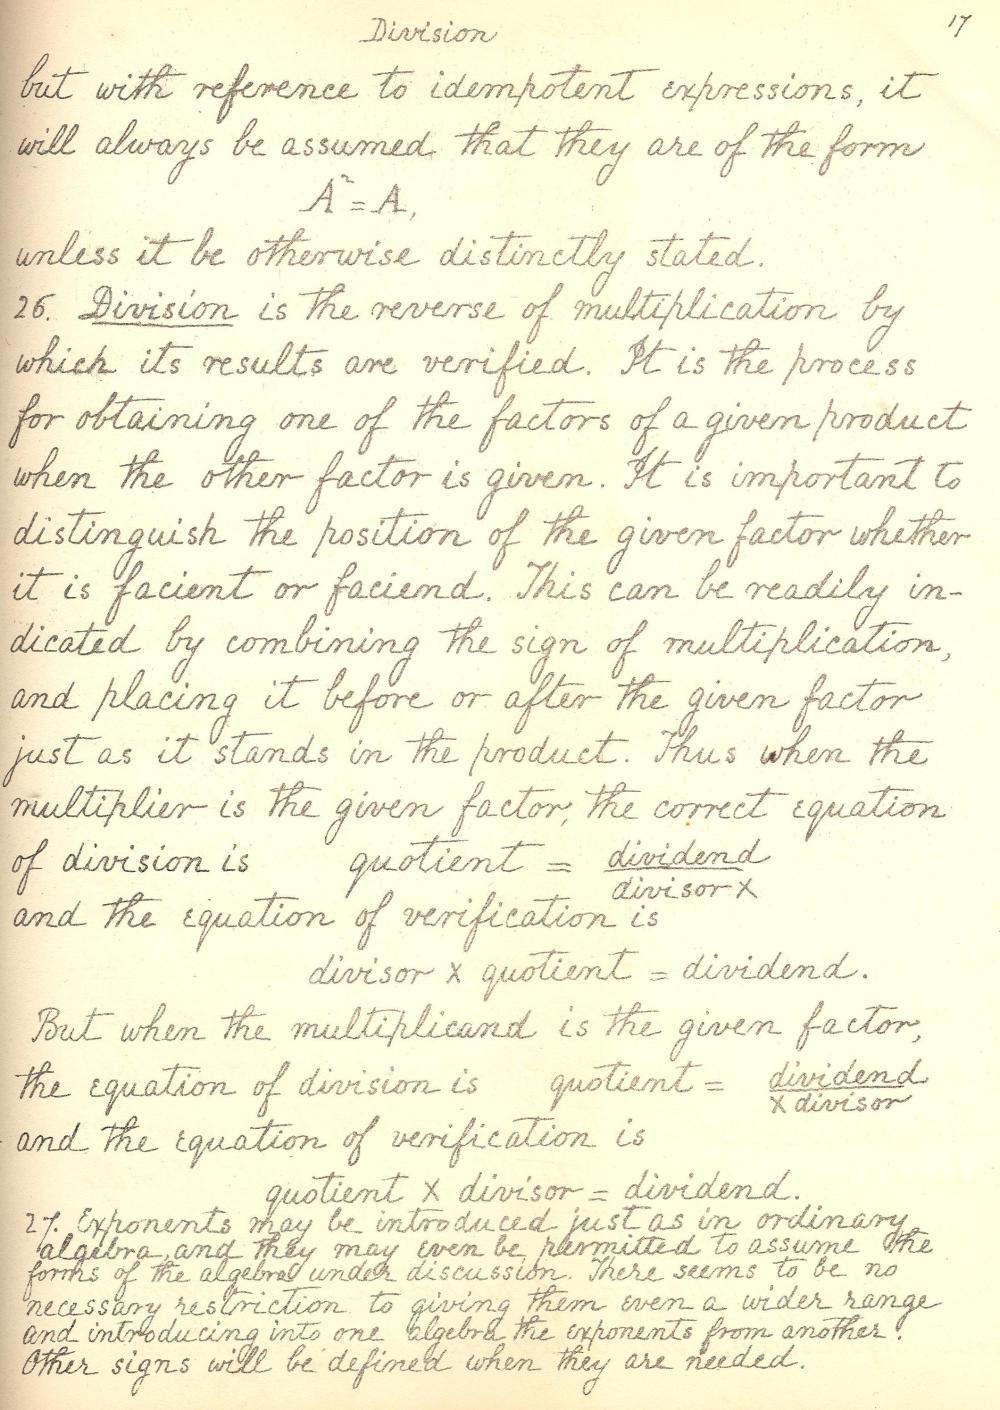 Division 17
but with reference to idempotent expressions, it
will always be assumed that they are of the form
A² = A,
unless it be otherwise distinctly stated.
26. Division is the reverse of multiplication by
which its results are verified. It is the process
for obtaining one of the factors of a given product
when the other factor is given. It is important to
distinguish the position of the given factor whether
it is facient or faciend. This can be readily in-
dicated by combining the sign of multiplication,
and placing it before or after the given factor
just as it stands in the product. Thus when the
multiplier is the given factor, the correct equation
of division is quotient = dividend
divisor x
and the equation of verification is
divisor x quotient = dividend.
But when the multiplicand is the given factor,
the equation of division is quotient = dividend
x divisor
and the equation of verification is
quotient x divisor = dividend.
27. Exponents may be introduced just as in ordinary
algebra, and they may even be permitted to assume the
forms of the algebra under discussion. There seems to be no
necessary restriction to giving them even a wider range
and introducing into one algebra the exponents from another.
Other signs will be defined when they are needed.